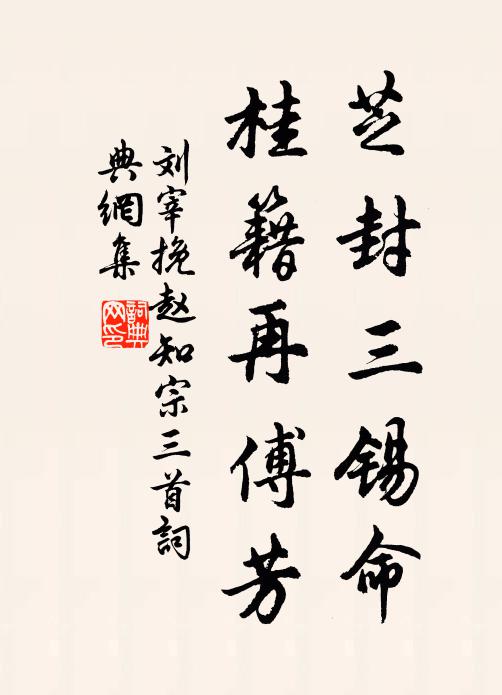 芝封三锡命
桂籍再傅芳
刘宰挽赵知宗三首詞
典網集
詞典網印